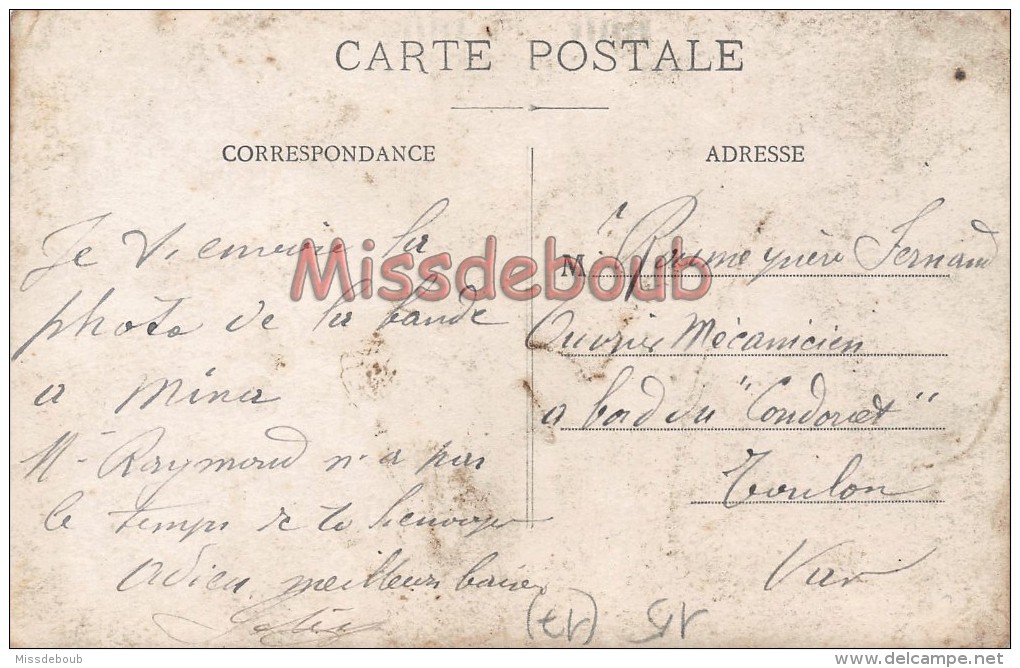 CARTE POSTALE
CORRESPONDANCE
Je t'envoie la
photo de la bande
a Mina
Mr Raymond n'a pas
le temps de te l'envoyer
Adieu meilleurs baisers
ADRESSE
M. Roumeyière Fernand
Ouvrier Mécanicien
a bord du "Condorcet"
Toulon
Var
15 (17)
Missdeboub
Missdeboub
delcampe.net